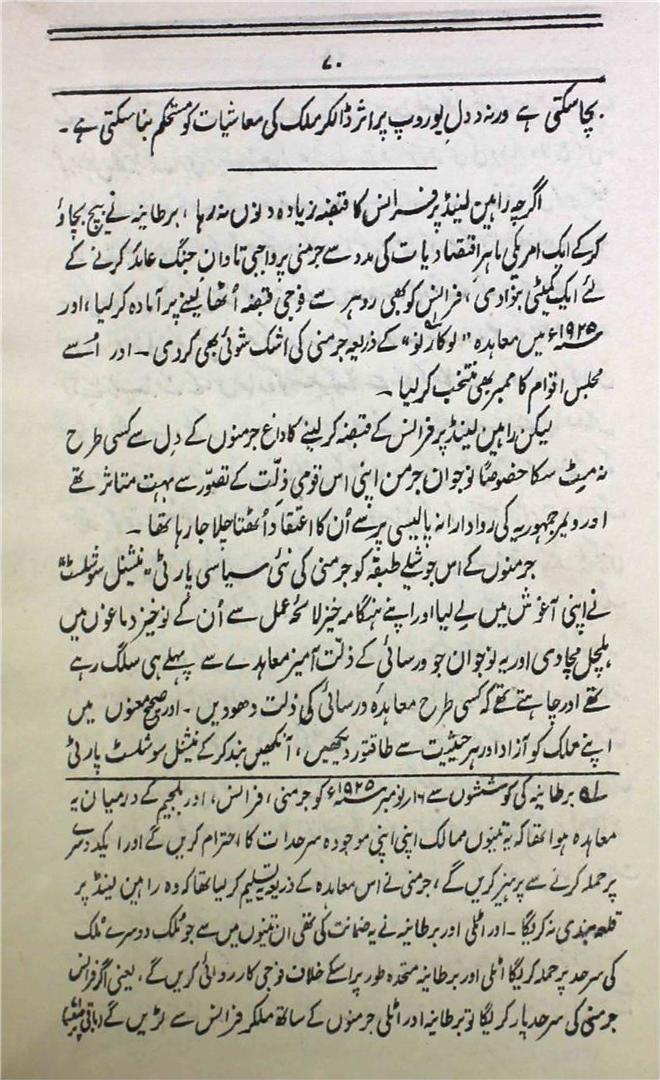 ۷۰
بچا سکتی ہے ورنہ دول یوروپ پر اثر ڈالکر ملک کی معاشیات کو مستحکم بنا سکتی ہے۔
اگرچہ راہین لینڈ پر فرانس کا قبضہ زیادہ دنوں نہ رہا، برطانیہ نے بیچ بچاؤ
کرکے ایک امریکی ماہر اقتصادیات کی مدد سے جرمنی پر واجبی تاوانِ جنگ عائد کرنے کے
لئے ایک کمیٹی بنوادی، فرانس کو بھی روہر سے فوجی قبضہ اُٹھا لینے پر آمادہ کرلیا، اور
۱۹۲۵ء میں معاہدہ "لوکارنو" کے ذریعہ جرمنی کی اشک شوئی بھی کردی۔ اور اُسے
مجلس اقوام کا ممبر بھی منتخب کرلیا۔
لیکن راہین لینڈ پر فرانس کے قبضہ کرلینے کا داغ جرمنوں کے دل سے کسی طرح
نہ میٹ سکا خصوصًا نوجوان جرمن اپنی اس قومی ذلّت کے تصوّر سے بہت متاثر تھے
اور ویمر جمہوریہ کی روادارانہ پالیسی پر سے اُن کا اعتقاد اُٹھتا چلا جا رہا تھا۔
جرمنوں کے اس جوشیلے طبقہ کو جرمنی کی نئی سیاسی پارٹی "نیشنل سوشلسٹ"
نے اپنی آغوش میں لے لیا اور اپنے ہنگامہ خیز لائحہ عمل سے اُن کے نوخیز دماغوں میں
ہلچل مچادی اور یہ نوجوان جو ورسائی کے ذلّت آمیز معاہدے سے پہلے ہی سلگ رہے
تھے اور چاہتے تھے کہ کسی طرح معاہدہ ورسائی کی ذلت دھودیں۔ اور صحیح معنوں میں
اپنے ملک کو آزاد اور ہر حیثیت سے طاقتور دیکھیں، آنکھیں بند کرکے نیشنل سوشلسٹ پارٹی
لہ برطانیہ کی کوششوں سے ۱۶ نومبر ۱۹۲۵ء کو جرمنی، فرانس، اور بلجیم کے درمیان یہ
معاہدہ ہوا تھا کہ یہ تینوں ممالک اپنی اپنی موجودہ سرحدات کا احترام کریں گے اور ایک دوسرے
پر حملہ کرنے سے پرہیز کریں گے، جرمنی نے اس معاہدہ کے ذریعہ تسلیم کرلیا تھا کہ وہ راہین لینڈ پر
قلعہ بندی نہ کریگا۔ اور اٹلی اور برطانیہ نے یہ ضمانت کی تھی ان تینوں میں سے جو ملک دوسرے ملک
کی سرحد پر حملہ کریگا اٹلی اور برطانیہ متحدہ طور پر اسکے خلاف فوجی کارروائی کریں گے، یعنی اگر فرانس
جرمنی کی سرحد پار کریگا تو برطانیہ اور اٹلی جرمنوں کے ساتھ ملکر فرانس سے لڑیں گے (باقی